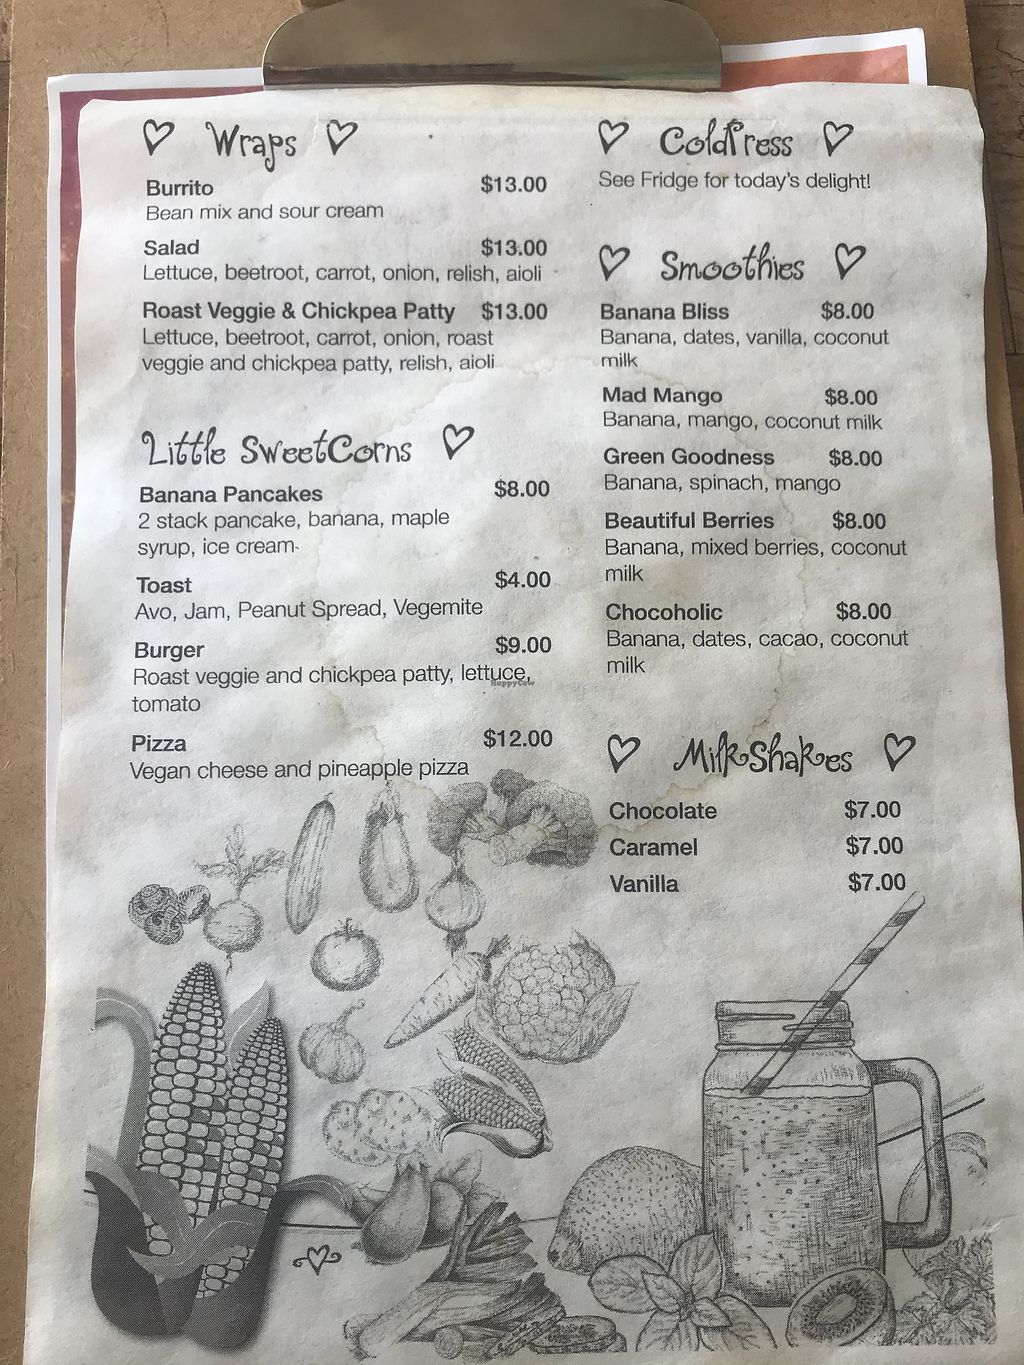 Wraps
Burrito $13.00
Bean mix and sour cream
Salad $13.00
Lettuce, beetroot, carrot, onion, relish, aioli
Roast Veggie & Chickpea Patty $13.00
Lettuce, beetroot, carrot, onion, roast
veggie and chickpea patty, relish, aioli
Little SweetCorns
Banana Pancakes $8.00
2 stack pancake, banana, maple
syrup, ice cream
Toast $4.00
Avo, Jam, Peanut Spread, Vegemite
Burger $9.00
Roast veggie and chickpea patty, lettuce,
tomato
HappyCow
Pizza $12.00
Vegan cheese and pineapple pizza
ColdPress
See Fridge for today's delight!
Smoothies
Banana Bliss $8.00
Banana, dates, vanilla, coconut
milk
Mad Mango $8.00
Banana, mango, coconut milk
Green Goodness $8.00
Banana, spinach, mango
Beautiful Berries $8.00
Banana, mixed berries, coconut
milk
Chocoholic $8.00
Banana, dates, cacao, coconut
milk
MilkShakes
Chocolate $7.00
Caramel $7.00
Vanilla $7.00